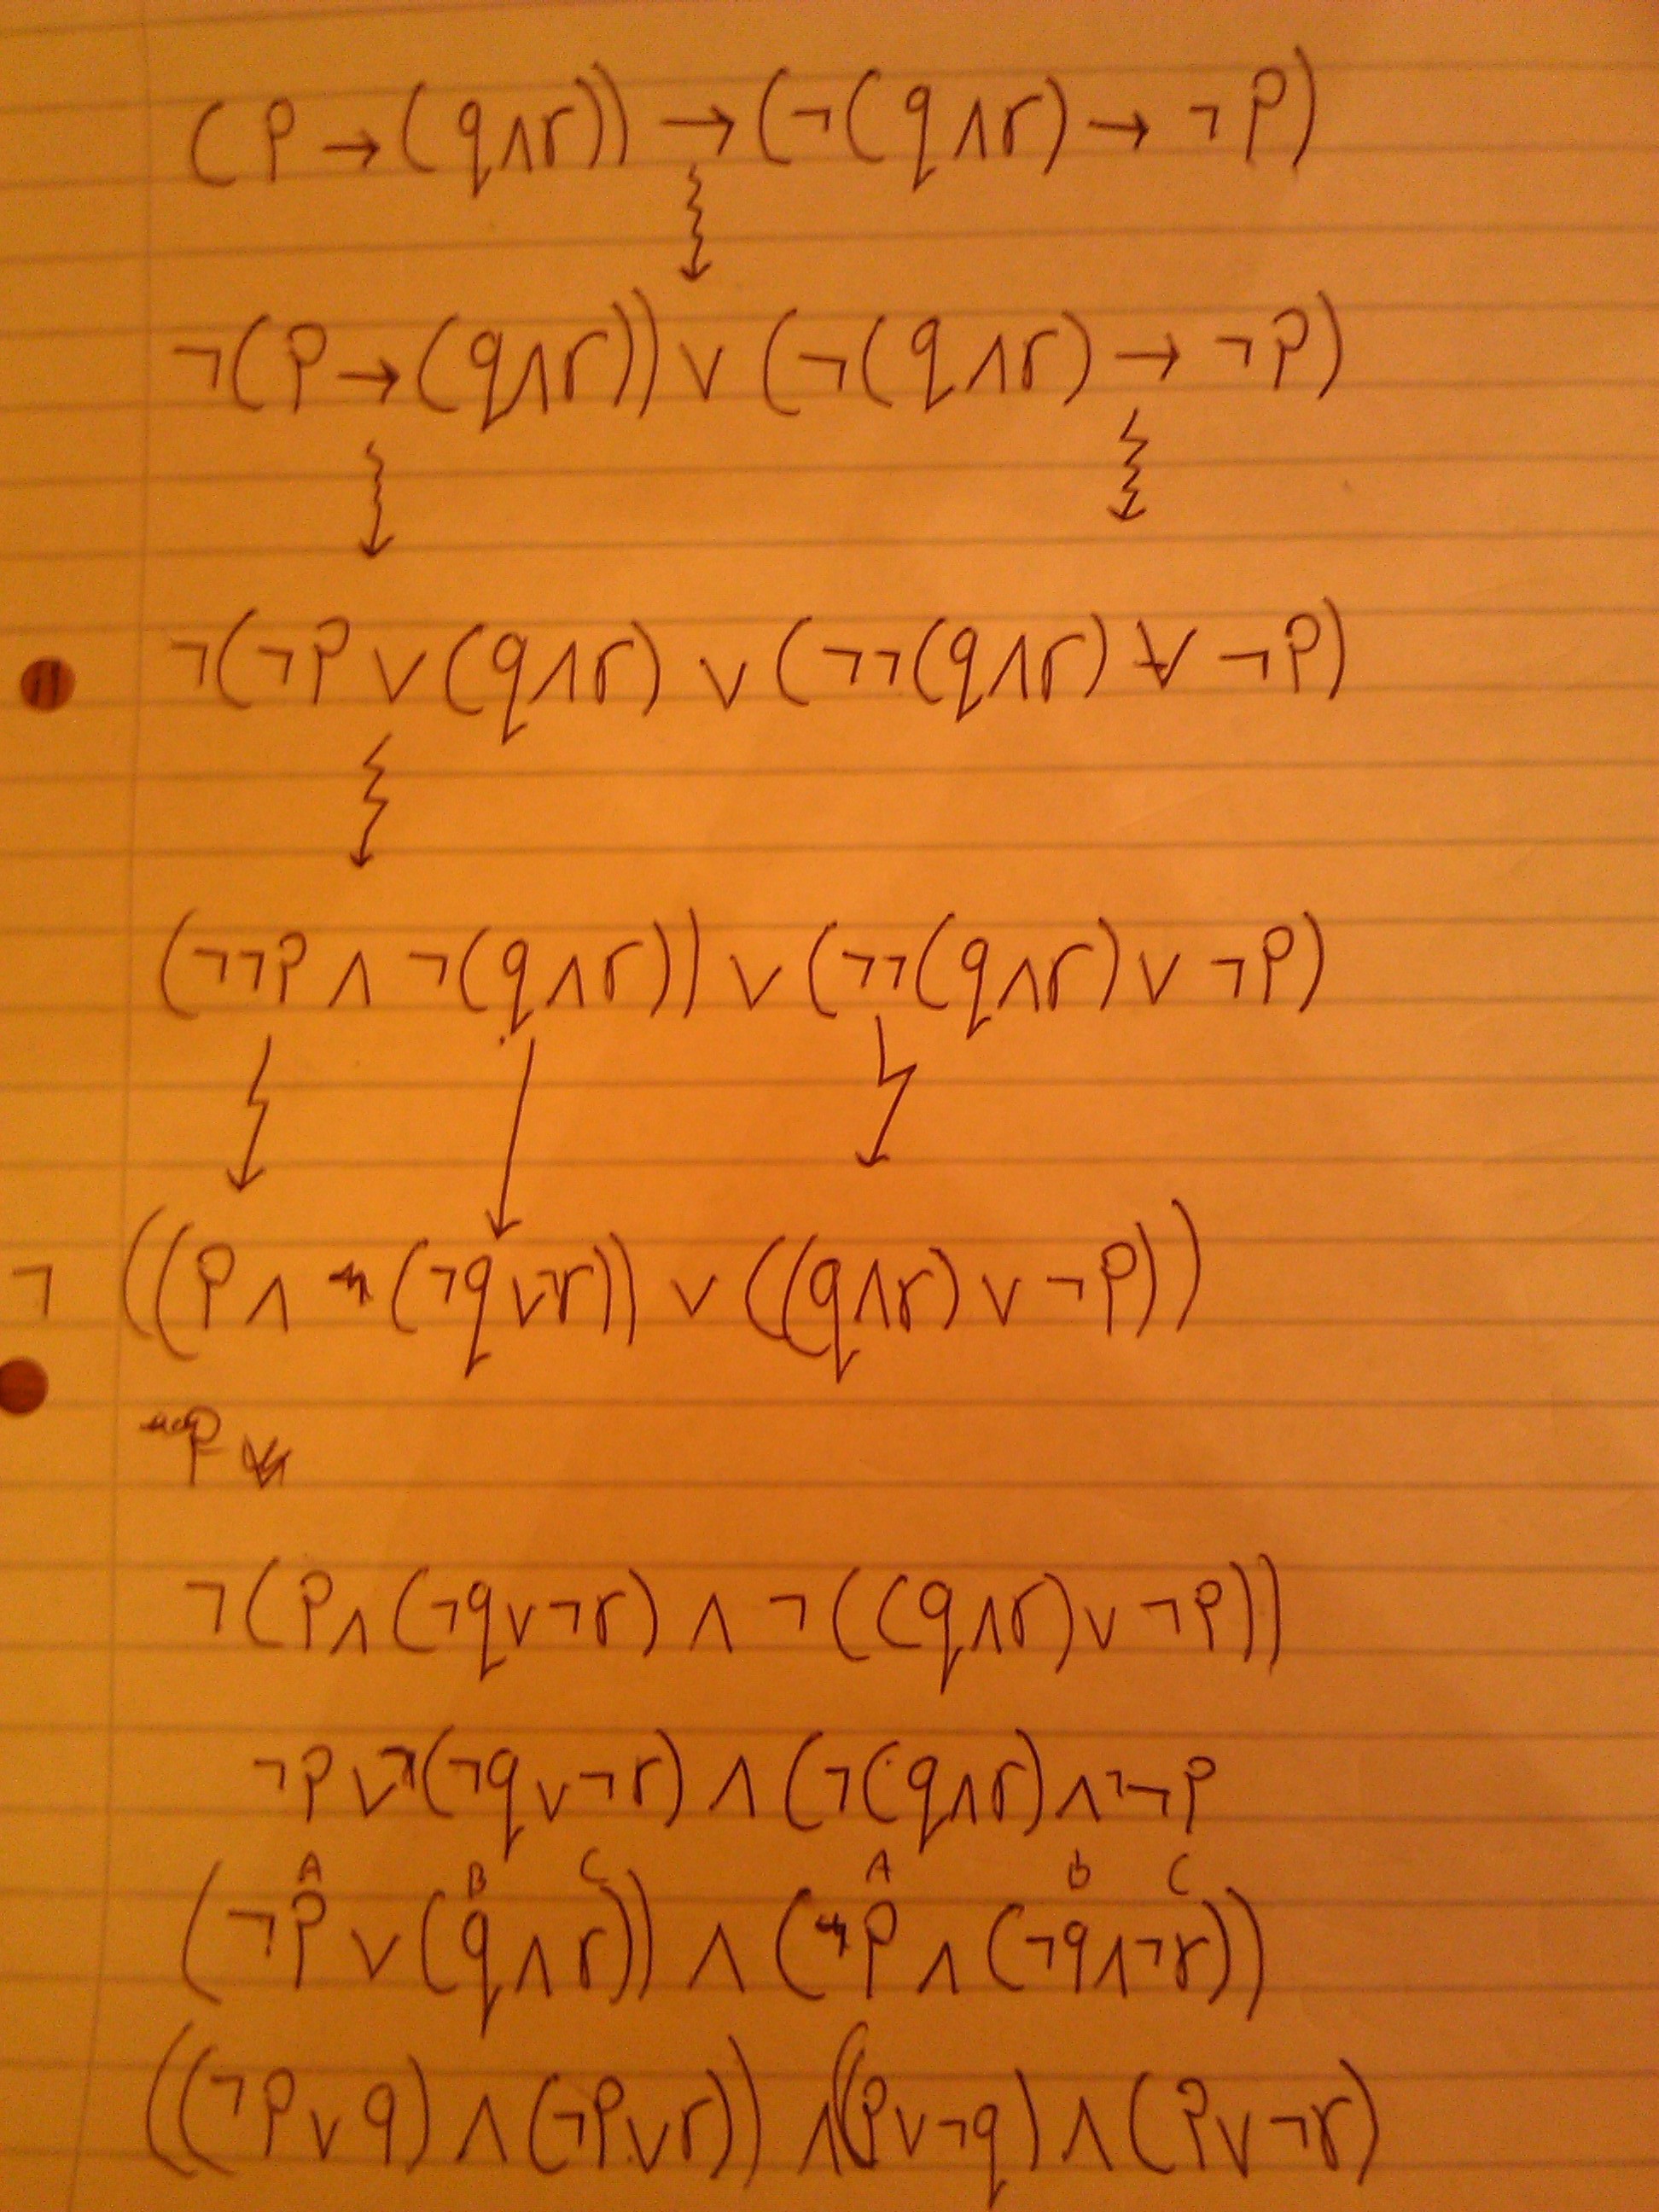 (P → (q ∧ r)) → (¬(q ∧ r) → ¬P)
¬(P → (q ∧ r)) ∨ (¬(q ∧ r) → ¬P)
¬(¬P ∨ (q ∧ r) ∨ (¬¬(q ∧ r) ∨ ¬P)
(¬¬P ∧ ¬(q ∧ r)) ∨ (¬¬(q ∧ r) ∨ ¬P)
¬ ((P ∧ (¬q ∨ ¬r)) ∨ ((q ∧ r) ∨ ¬P))
P
¬(P ∧ (¬q ∨ ¬r) ∧ ¬((q ∧ r) ∨ ¬P))
¬P ∨ ¬(¬q ∨ ¬r) ∧ (¬(q ∧ r) ∧ ¬¬P
A B C A B C
(¬P ∨ (q ∧ r)) ∧ (P ∧ (¬q ∧ ¬r))
((¬P ∨ q) ∧ (¬P ∨ r)) ∧ ((P ∨ ¬q) ∧ (P ∨ ¬r)